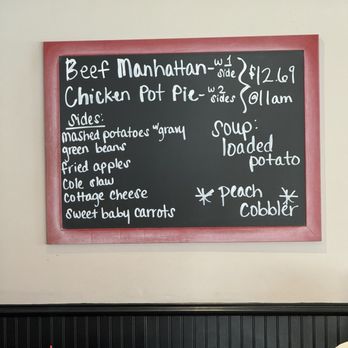 Beef Manhattan - w 1 side } $12.69
Chicken Pot Pie - w 2 sides } @ 11am
Sides:
mashed potatoes w gravy
green beans
fried apples
Cole slaw
cottage cheese
sweet baby carrots
soup:
loaded
potato
* peach *
cobbler